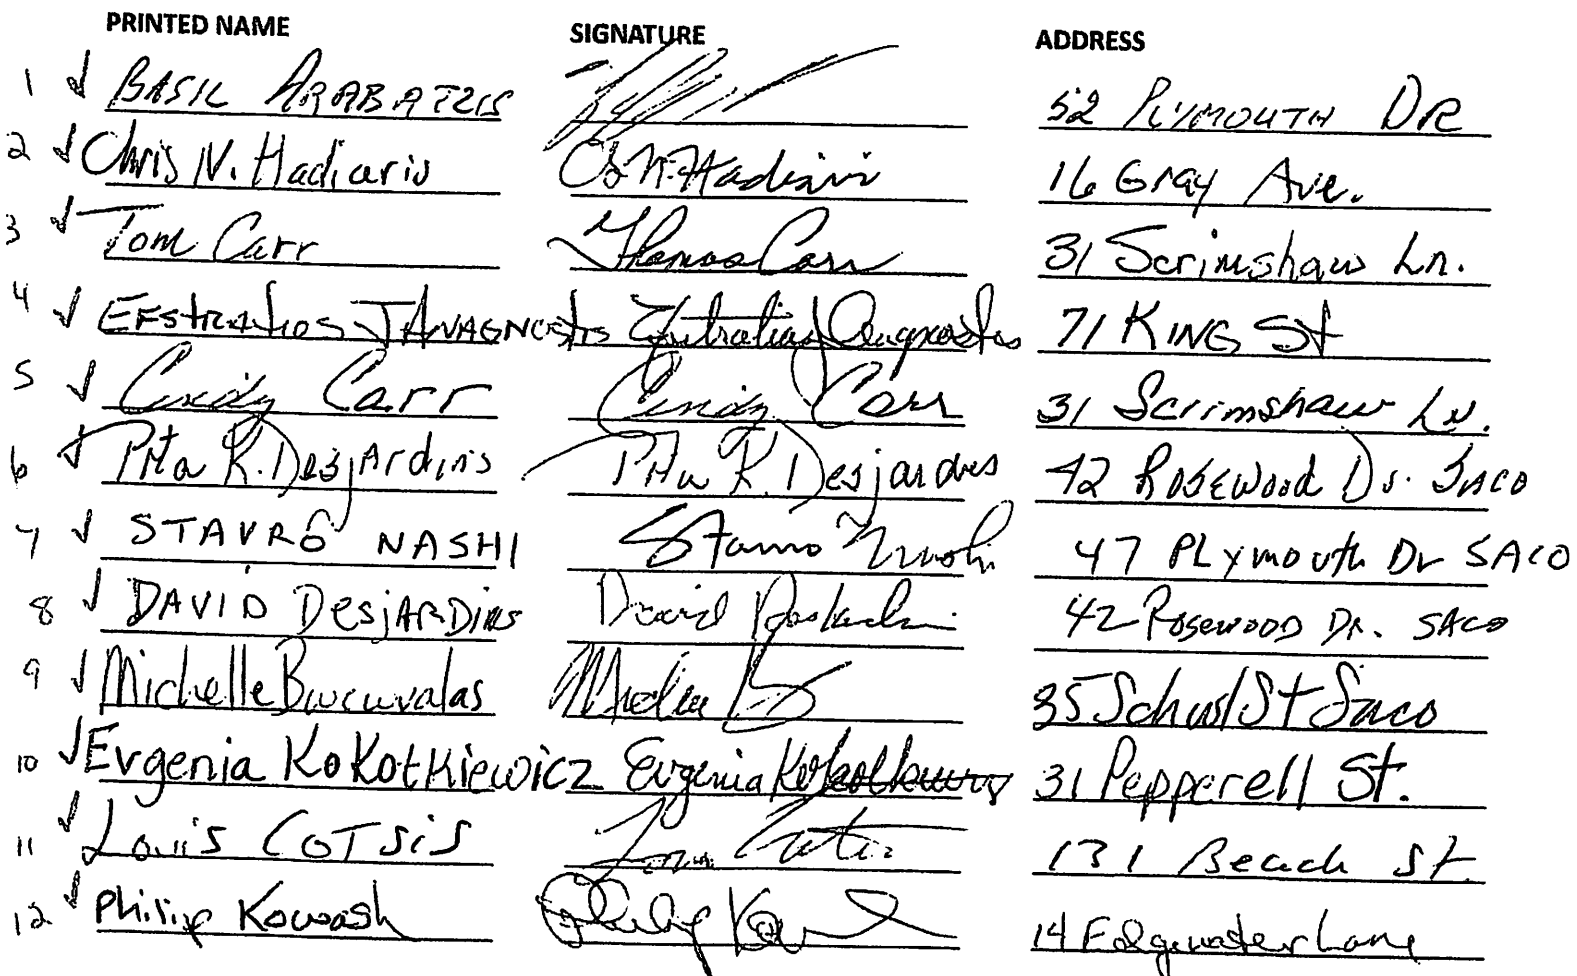 PRINTED NAME SIGNATURE ADDRESS
1 BASIL ARABATZIS 52 PLYMOUTH DR
2 Chris N. Hadiaris Chris N. Hadiaris 16 Gray Ave.
3 Tom Carr Thomas Carr 31 Scrimshaw Ln.
4 EFstratios J ANAGNOStis Efstratios J Anagnostis 71 KING St
5 Cindy Carr Cindy Carr 31 Scrimshaw Ln.
6 Rita K. DesjArdins Rita K. Desjardins 42 Rosewood Dr. SACO
7 STAVRO NASHI Stavro Nashi 47 PLYmouth Dr SACO
8 DAVID DesjARDINS David Desjardins 42 ROSEWOOD DR. SACO
9 Michelle Bucuvalas Michelle 35 School St Saco
10 Evgenia KoKotKiewicz Evgenia Kokotkiewicz 31 Pepperell St.
11 Louis COTSIS Louis Cotsis 131 Beach St.
12 Philip Kowash Philip 14 Edgewater Lane